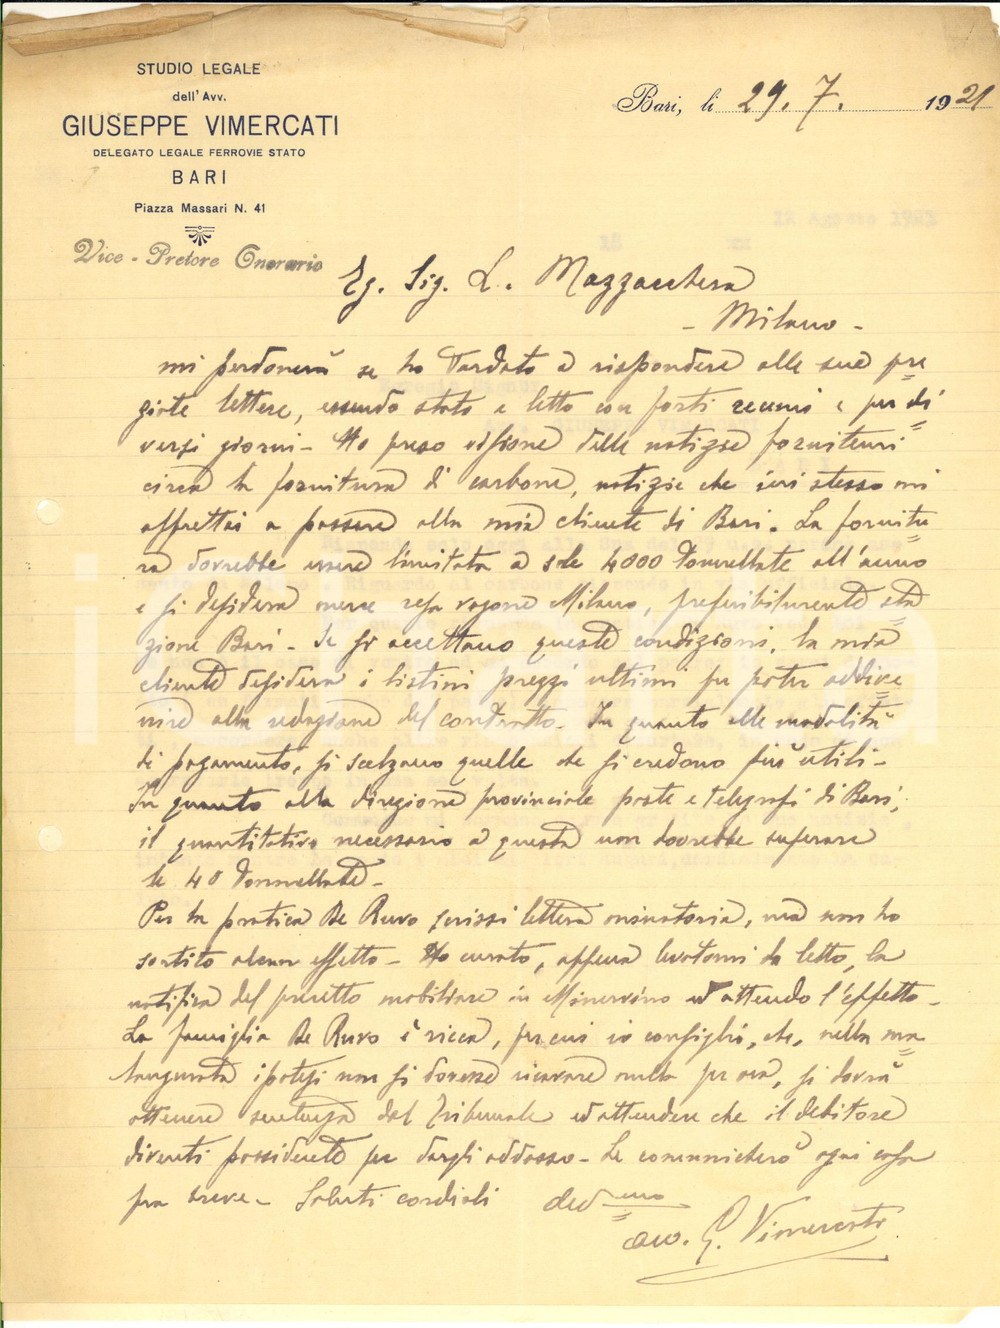 STUDIO LEGALE
dell'Avv.
GIUSEPPE VIMERCATI
DELEGATO LEGALE FERROVIE STATO
BARI
Piazza Massari N. 41
Vice-Pretore Onorario
Bari, li 29. 7. 1921
12 Agosto 1921
Eg. Sig. L. Mazzacchera
- Milano -
mi perdonerà se ho tardato a rispondere alle sue pre=
giate lettere, essendo stato a letto con forti reumi e per di=
versi giorni - Ho preso visione delle notizie fornitemi
circa la fornitura di carbone, notizie che ieri stesso mi
affrettai a passare alla mia cliente di Bari. La fornitu=
ra dovrebbe essere limitata a sole 4000 tonnellate all'anno
e si desidera merce resa vagone Milano, preferibilmente sta=
zione Bari - Se si accettano queste condizioni, la mia
cliente desidera i listini prezzi ultimi per poter addive=
nire alla redazione del contratto. In quanto alle modalità
di pagamento, si scelgano quelle che si credono più utili -
In quanto alla direzione provinciale poste e telegrafi di Bari,
il quantitativo necessario a questa non dovrebbe superare
le 40 tonnellate -
Per la pratica De Ruvo scrissi lettera minatoria, ma non ho
sortito alcun effetto - Ho curato, appena levatomi da letto, la
notifica del precetto mobiliare in Minervino ed attendo l'effetto -
La famiglia De Ruvo è ricca, per cui io consiglio, che, nella ma=
laugurata ipotesi non si dovesse ricavare nulla per ora, si dovrà
ottenere sentenza dal Tribunale ed attendere che il debitore
diventi possidente per dargli addosso - Le comunicherò ogni cosa
fra breve - Saluti cordiali dev=mo
avv. G. Vimercati